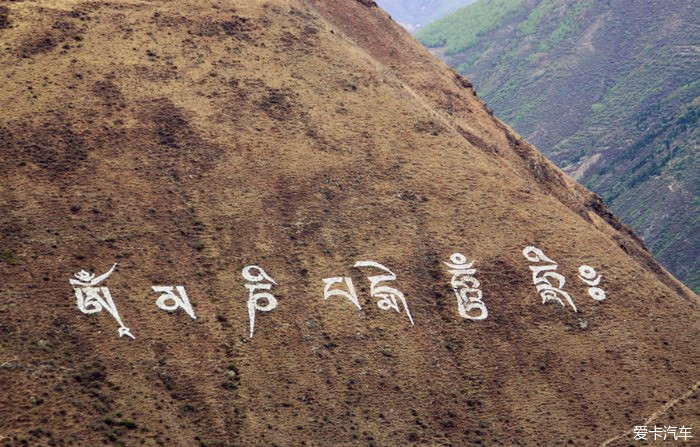 ཨོཾ མ ཎི པ དྨེ ཧཱུྃ ཧྲཱིཿ
爱卡汽车